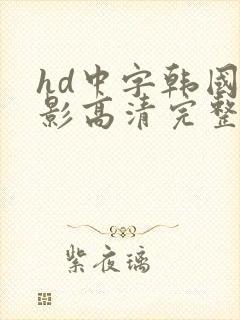 hd中字韩国
影高清完整
紫夜璃